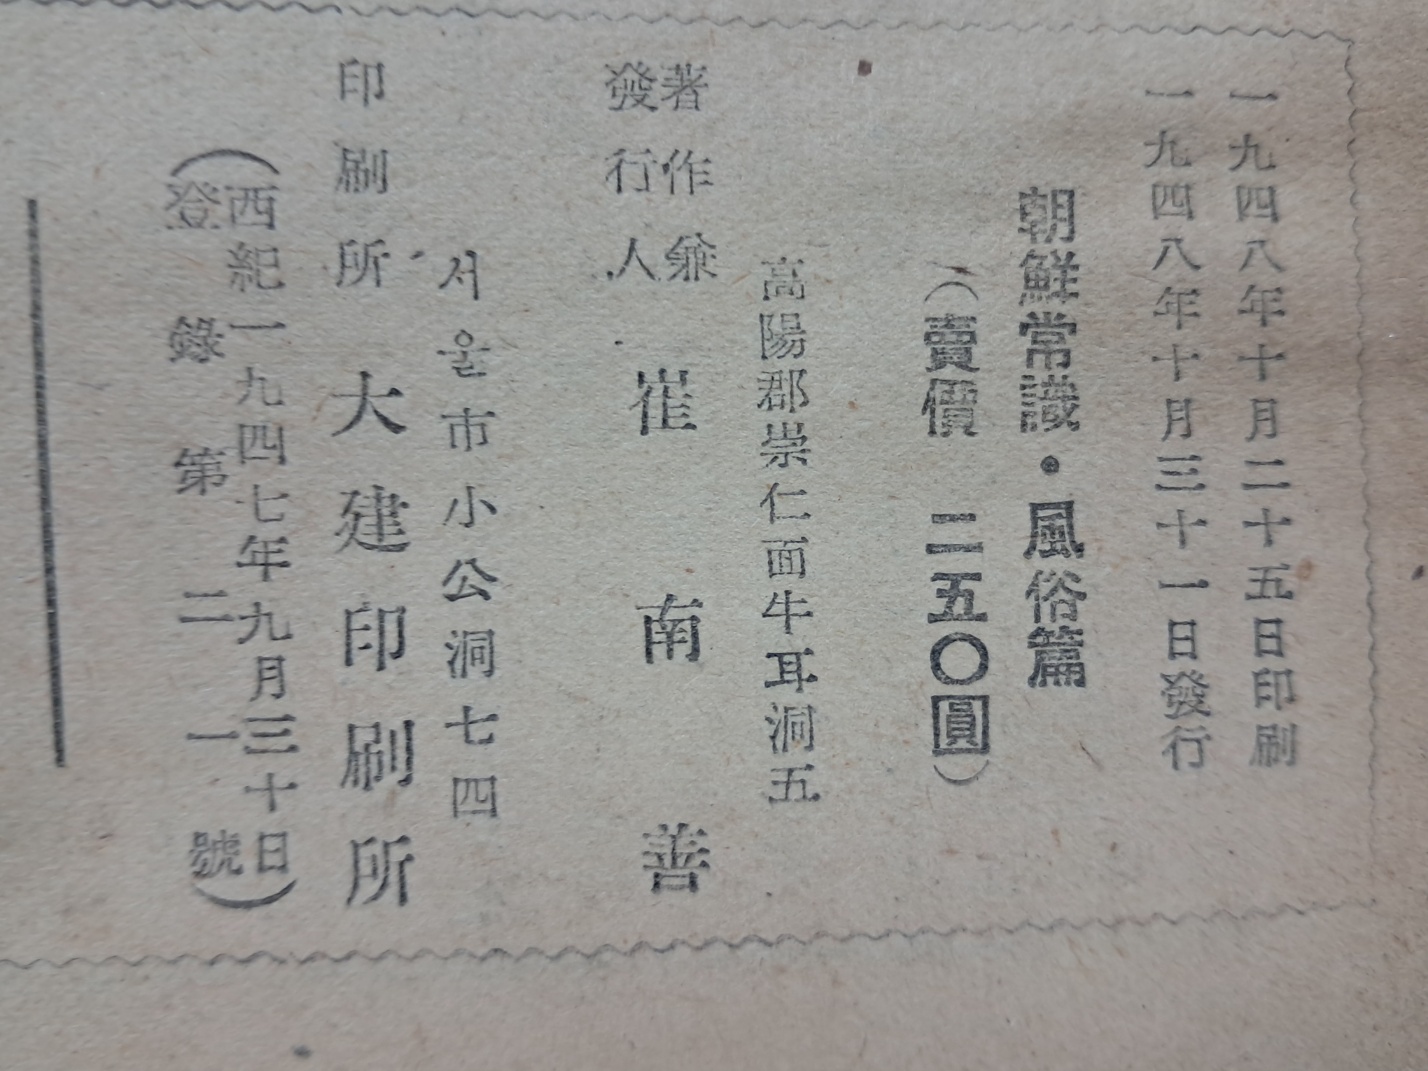 一九四八年十月二十五日印刷
一九四八年十月三十一日發行
朝鮮常識・風俗篇
（賣價 二五〇圓）
高陽郡崇仁面牛耳洞五
著作兼
發行人
崔南善
서울市小公洞七四
印刷所 大建印刷所
（西紀一九四七年九月三十日
登錄第二一號）